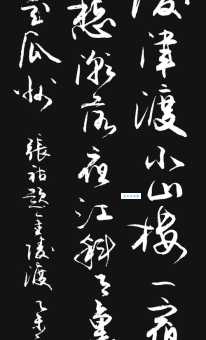 陵津渡小山樓一宿
愁潮落夜江斜月裏
是瓜州 張祜題金陵渡